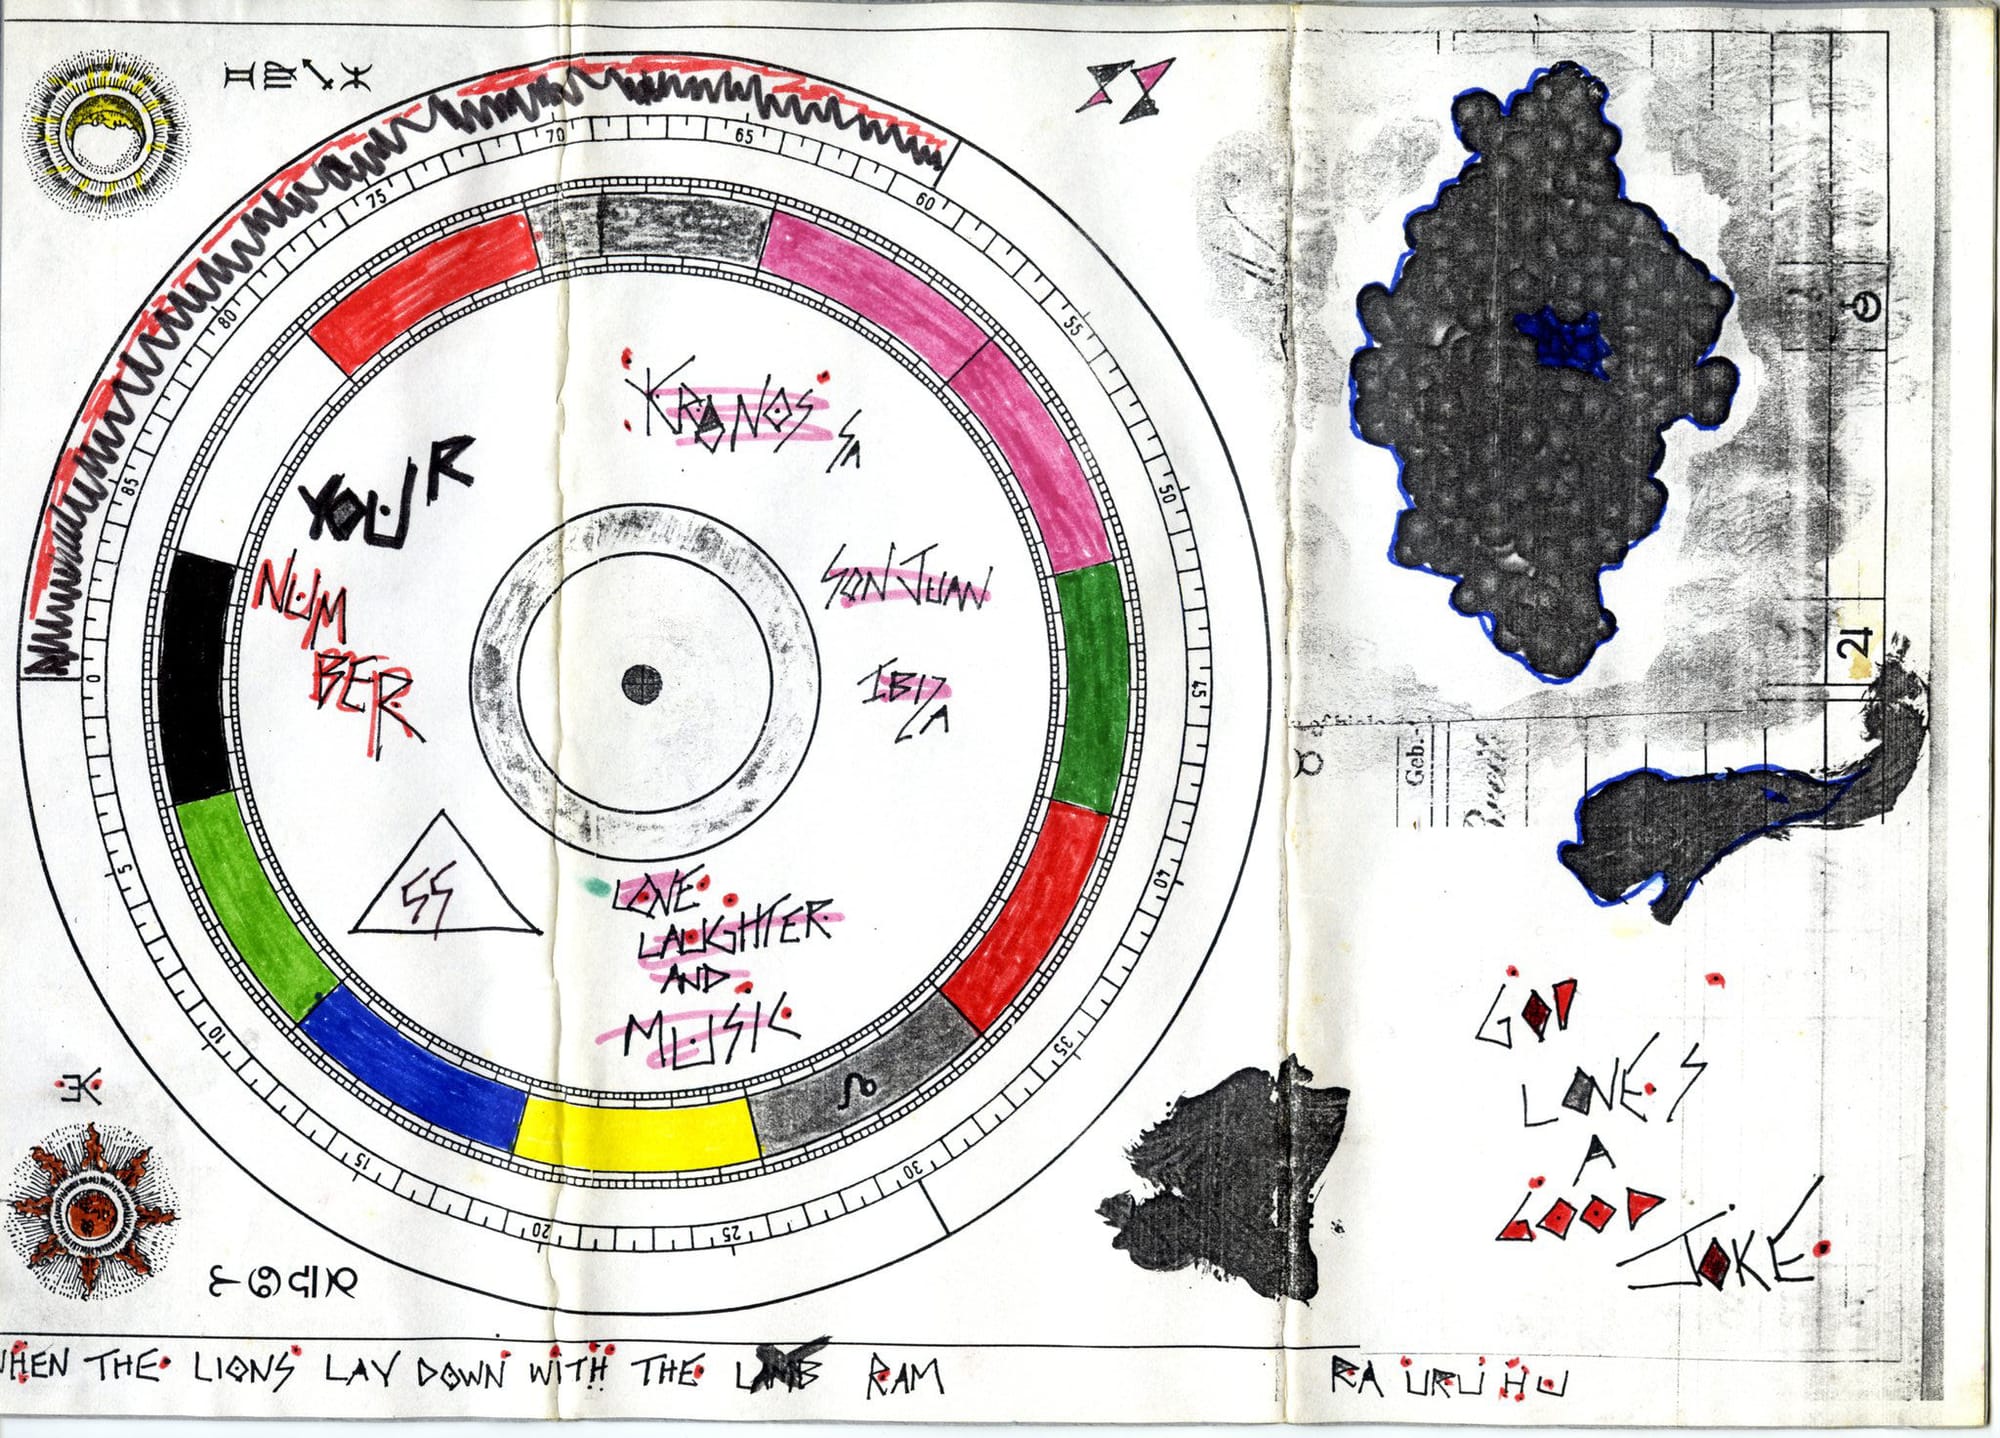 70
65
75
60
80
55
85
50
0
45
5
40
10
35
15
30
20
25
KRONOS
SA
YOUR
NUM
BER
SON JUAN
IBIZA
SS
LOVE
LAUGHTER
AND
MUSIC
Geb.-
GOD
LOVES
A
GOOD
JOKE
WHEN THE LIONS LAY DOWN WITH THE LAMB RAM
RA URU HU